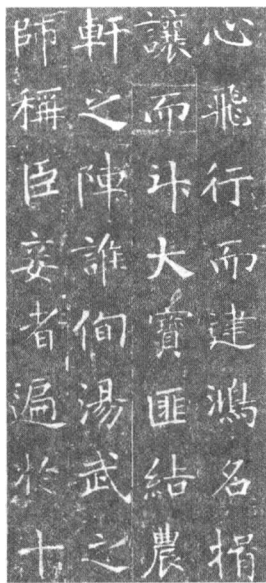 心飛行而建鴻名揖
讓而升大寶匪結農
軒之陣誰徇湯武之
師稱臣妾者遍於十